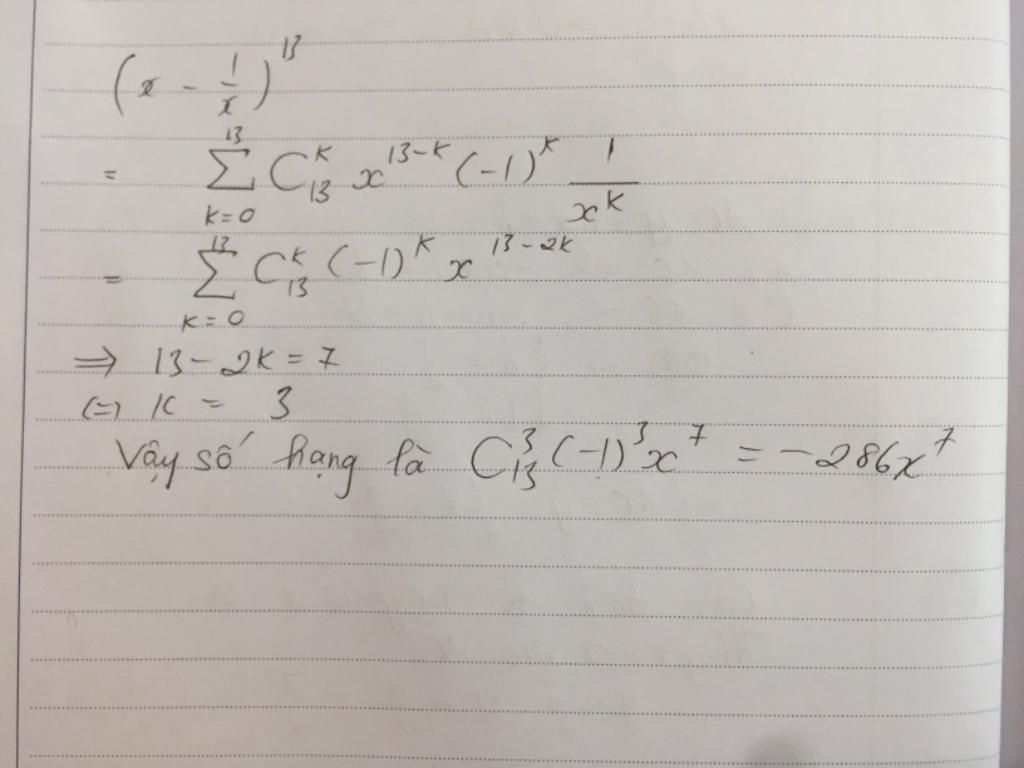 (x - 1/x)^13
= ∑_{k=0}^{13} C_13^k x^{13-k} (-1)^k 1/x^k
= ∑_{k=0}^{13} C_13^k (-1)^k x^{13-2k}
⇒ 13 - 2k = 7
(=) k = 3
Vậy số hạng là C_13^3 (-1)^3 x^7 = -286x^7